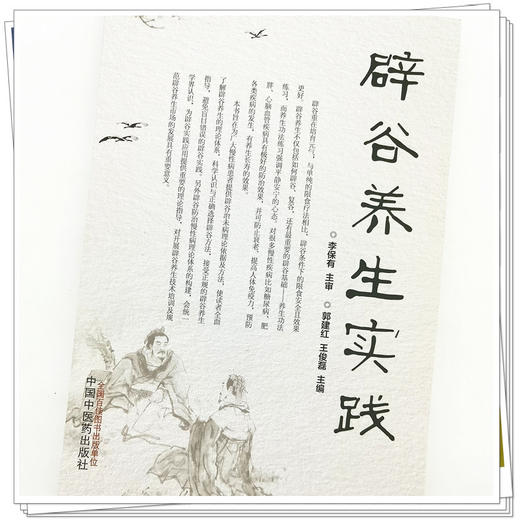 辟谷养生实践
◎李保有 主审
◎郭建红 王俊磊 主编
辟谷重在培育元气；与单纯的限食疗法相比，辟谷条件下的限食安全且效果
更好，辟谷养生不仅包括如何辟谷、复谷，还有最重要的辟谷基础——养生功法
练习，而养生功法练习强调平静安宁的心态。对很多慢性疾病比如糖尿病、肥
胖、心脑血管疾病具有极好的防治效果，并可防止衰老，提高人体免疫力，预防
各类疾病的发生，有养生长寿的效果。
本书旨在为广大慢性病患者提供辟谷治未病理论依据及方法，使读者全面
了解辟谷养生的理论体系，科学认识与正确选择辟谷方法，接受正规的辟谷养生
指导，避免盲目错误的辟谷实践。另外辟谷防治慢性病理论体系的构建，会统一
学界认识，为辟谷实践应用提供重要的理论指导，对开展辟谷养生技术培训及规
范辟谷养生市场的发展具有重要意义。
全国百佳图书出版单位
中国中医药出版社